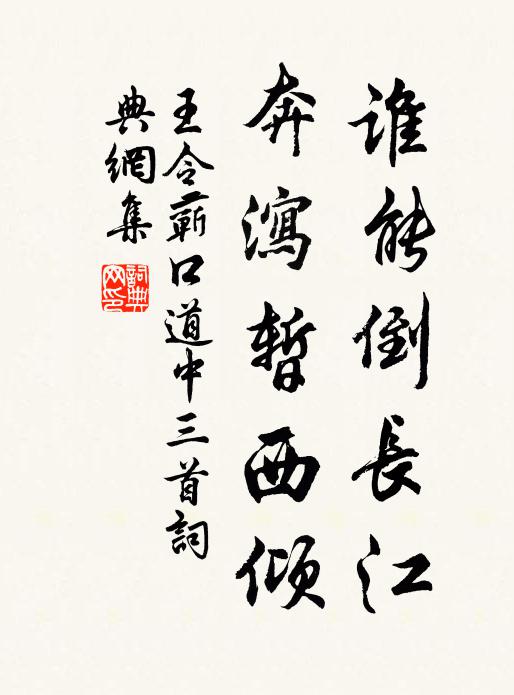 誰能倒長江
奔瀉暫西傾
王令蘄口道中三首詞
典網集
詞典網印